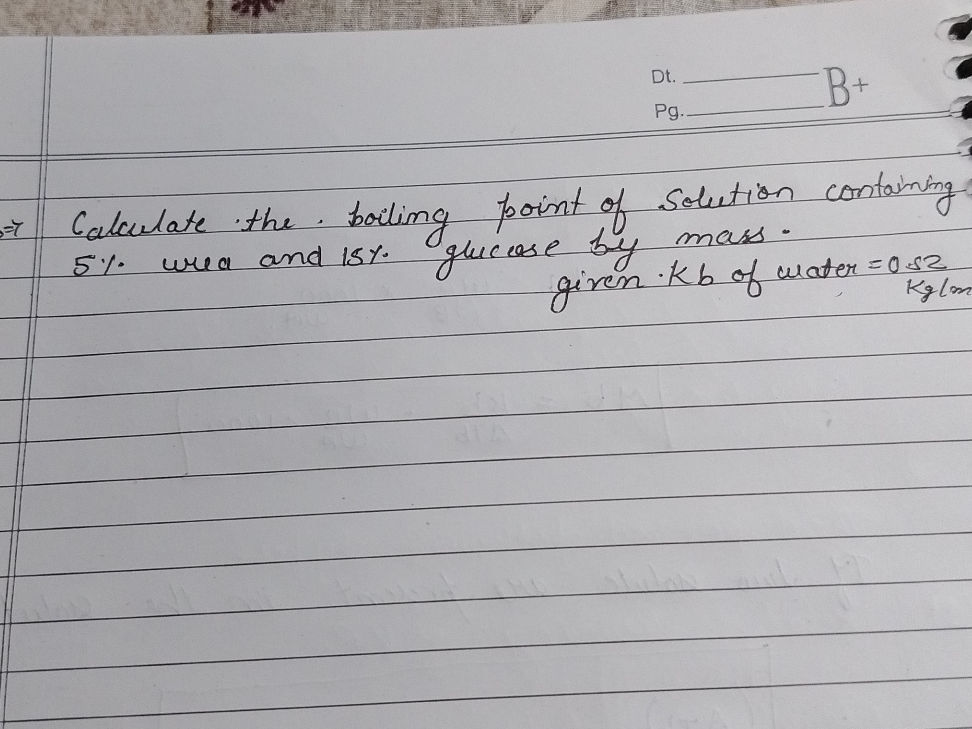 Dt.
B+
Pg.
Calculate the boiling point of solution containing
5% urea and 15% glucose by mass.
given Kb of water = 0.52
Kg/m